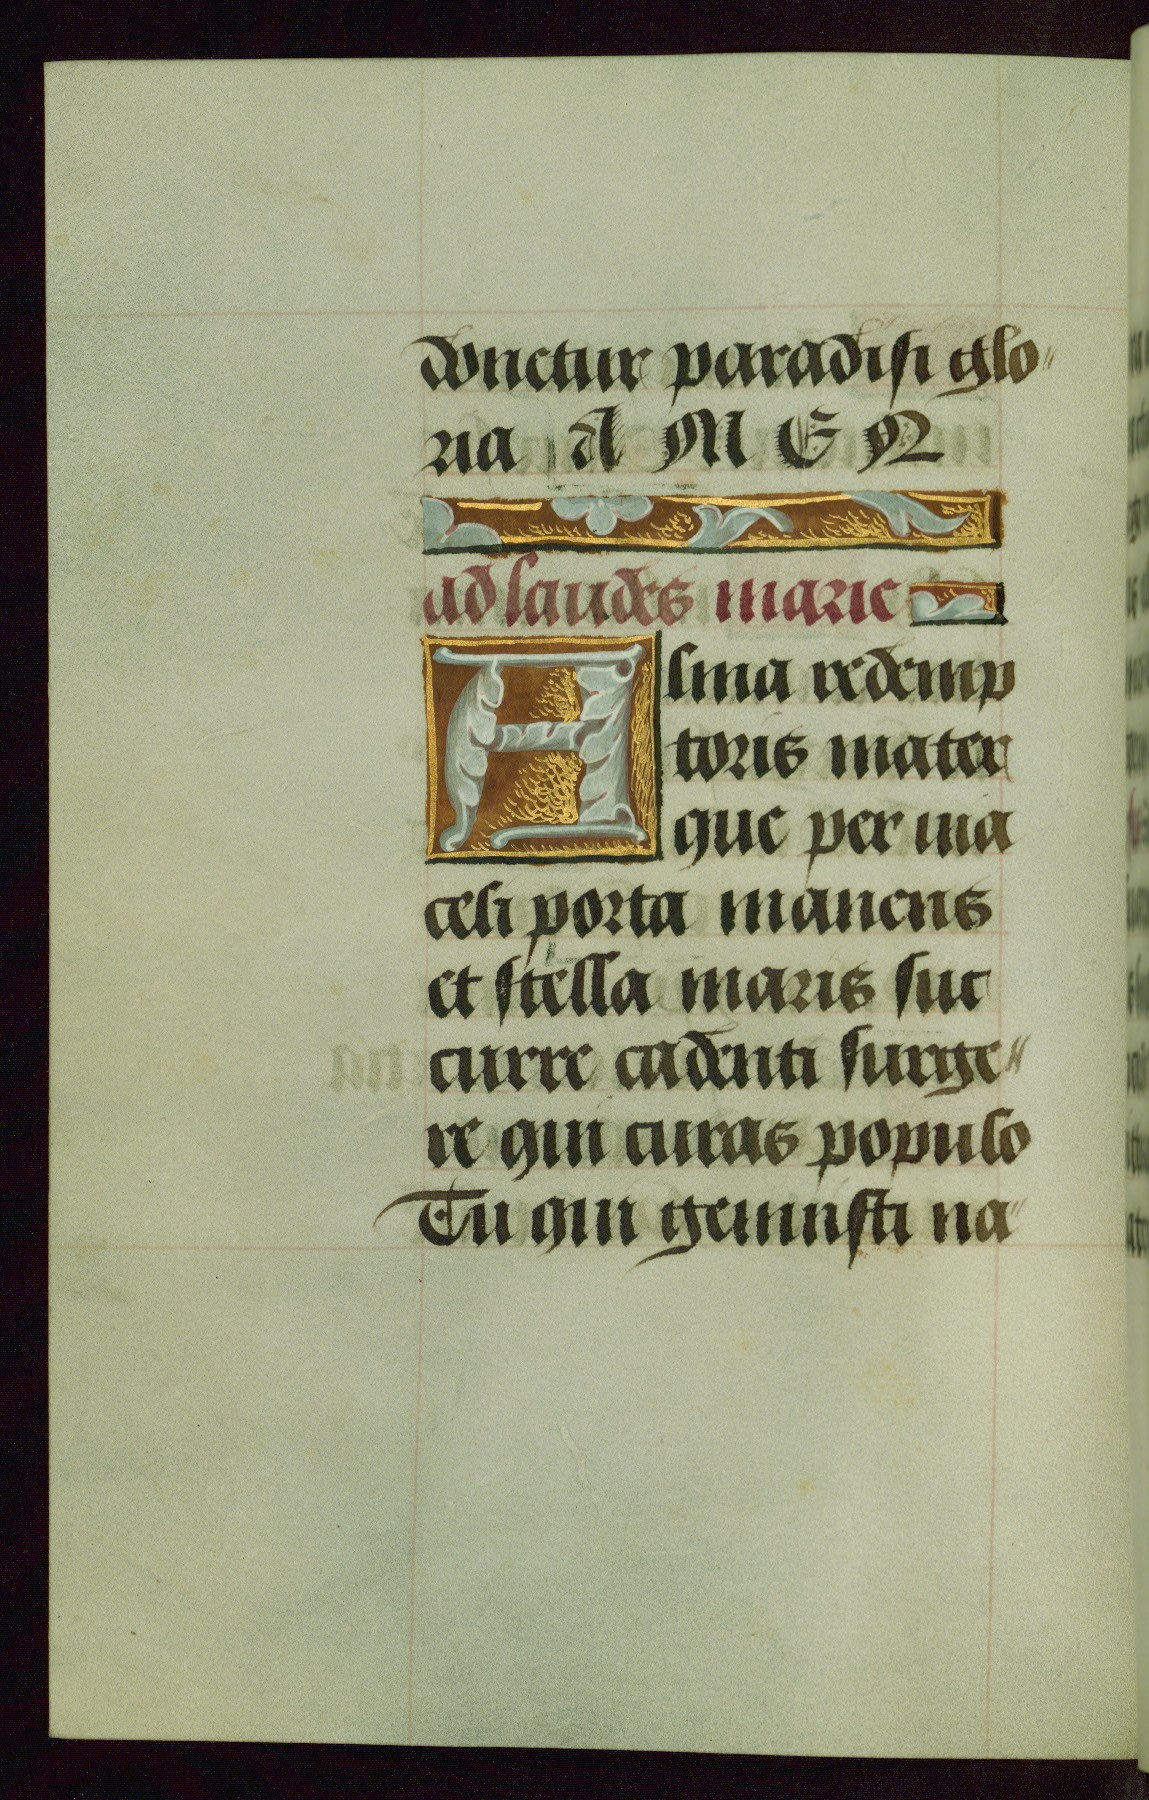 donetur paradisi glo"
ria A M E N
ad laudes marie
Alma redemp
toris mater
que per uia
celi porta manens
et stella maris suc
curre cadenti surge"
re qui curas populo
Tu qui genuisti na"